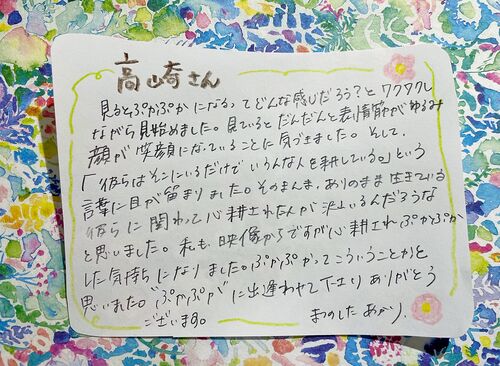 高崎さん
見るとぷかぷかになるってどんな感じだろう?とワクワクし
ながら見始めました。見ているとだんだんと表情筋がゆるみ
顔が笑顔になっていることに気づきました。そして、
「彼らはそこにいるだけでいろんな人を耕している。」という
言葉に目が留まりました。そのまんま、ありのまま生きている
彼らに関わって心耕された人が沢山いるんだろうな
と思いました。私も、映像からですが心耕されぷかぷか
した気持ちになりました。ぷかぷかってこういうことかと
思いました。"ぷかぷか"に出逢わせて下さりありがとう
ございます。
まつのした あかり